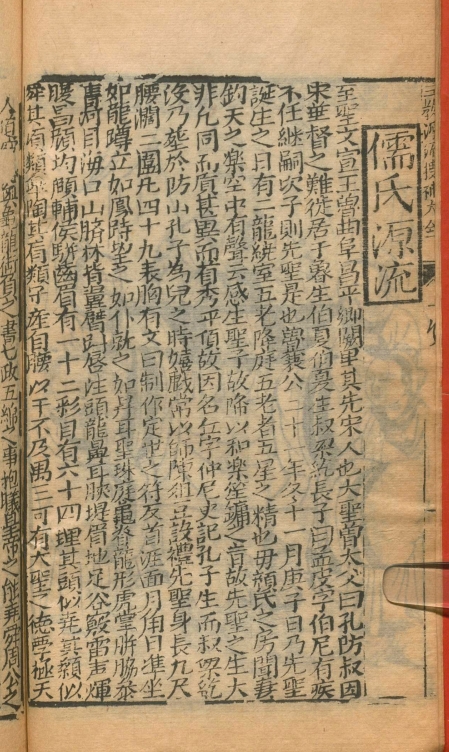 三教源流搜神大全
儒氏源流
至聖文宣王魯曲阜昌平鄉闕里其先宋人也大聖曾大父曰孔防叔因
宋華督之難徙居于魯生伯夏伯夏生叔梁紇長子曰孟皮字伯尼有疾
不任継嗣次子則先聖是也魯襄公二十二年冬十一月庚子日乃先聖
誕生之日有二龍繞室五老降庭五老者五星之精也毋顏氏之房聞奏
鈞天之樂空中有聲云感生聖子故降以和樂笙鏞之音故先聖之生大
非凡同而質甚異而有秀平頂故因名丘字仲尼史記孔子生而叔梁紇
沒乃葬於防小孔子為兒之時嬉戲常以師陳俎豆設禮先聖身長九尺
腰濶二圍凡四十九表胸有文曰制作定世之符反首洼面月角日準坐
如龍蹲立如鳳峙望之如仆就之如昇耳聖珠庭龜脊龍形虎掌胼脇參
膺河目海口山臍林背翼臂斗唇注頭龍鼻耳肤堤眉地足谷竅雷声輝
腰昌顏均頤輔侯駢齒眉有一十二彩目有六十四理其頭似尭其顙似
舜其項類皋陶其肩類子產自腰以下不及禹三寸有大聖之德學極天
人道 書七政五緯之事抱 羲皇帝之能堯舜周公之